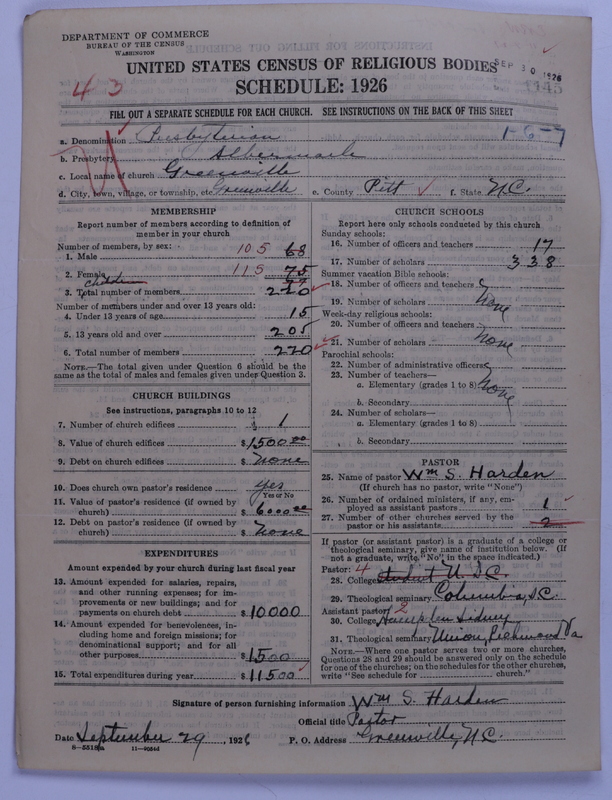 DEPARTMENT OF COMMERCE
BUREAU OF THE CENSUS
WASHINGTON
UNITED STATES CENSUS OF RELIGIOUS BODIES
SEP 30 1926
SCHEDULE: 1926
43
FILL OUT A SEPARATE SCHEDULE FOR EACH CHURCH. SEE INSTRUCTIONS ON THE BACK OF THIS SHEET
1-6-7
a. Denomination Presbyterian
b. Presbytery Albemarle
c. Local name of church Greenville
d. City, town, village, or township, etc. Greenville e. County Pitt f. State N.C.
MEMBERSHIP
Report number of members according to definition of member in your church
Number of members, by sex:
1. Male 105 68
2. Female 115 75
children 77
3. Total number of members 220
Number of members under and over 13 years old:
4. Under 13 years of age 15
5. 13 years old and over 205
6. Total number of members 220
NOTE.—The total given under Question 6 should be the same as the total of males and females given under Question 3.
CHURCH BUILDINGS
See instructions, paragraphs 10 to 12
7. Number of church edifices 1
8. Value of church edifices $1500 00
9. Debt on church edifices $ None
10. Does church own pastor's residence yes
Yes or No
11. Value of pastor's residence (if owned by church) $ 6000 00
12. Debt on pastor's residence (if owned by church) $ None
EXPENDITURES
Amount expended by your church during last fiscal year
13. Amount expended for salaries, repairs, and other running expenses; for improvements or new buildings; and for payments on church debt $10000
14. Amount expended for benevolences, including home and foreign missions; for denominational support; and for all other purposes $1500
15. Total expenditures during year $11500
CHURCH SCHOOLS
Report here only schools conducted by this church
Sunday schools:
16. Number of officers and teachers 17
17. Number of scholars 338
Summer vacation Bible schools:
18. Number of officers and teachers
19. Number of scholars None
Week-day religious schools:
20. Number of officers and teachers
21. Number of scholars None
Parochial schools:
22. Number of administrative officers
23. Number of teachers—
a. Elementary (grades 1 to 8) None
b. Secondary
24. Number of scholars—
a. Elementary (grades 1 to 8)
b. Secondary
PASTOR
25. Name of pastor Wm S. Harden
(If church has no pastor, write "None")
26. Number of ordained ministers, if any, employed as assistant pastors 1
27. Number of other churches served by the pastor or his assistants 2
If pastor (or assistant pastor) is a graduate of a college or theological seminary, give name of institution below. (If not a graduate, write "No" in the space indicated.)
Pastor: 4
28. College student U.S.C.
29. Theological seminary Columbia, S.C.
Assistant pastor: 2
30. College Hampden Sidney
31. Theological seminary Union, Richmond Va
NOTE.—Where one pastor serves two or more churches, Questions 28 and 29 should be answered only on the schedule for one of the churches; on the schedules for the other churches, write "See schedule for ____ church."
Signature of person furnishing information Wm S. Harden
Official title Pastor
Date September 29, 1926 P. O. Address Greenville, N.C.